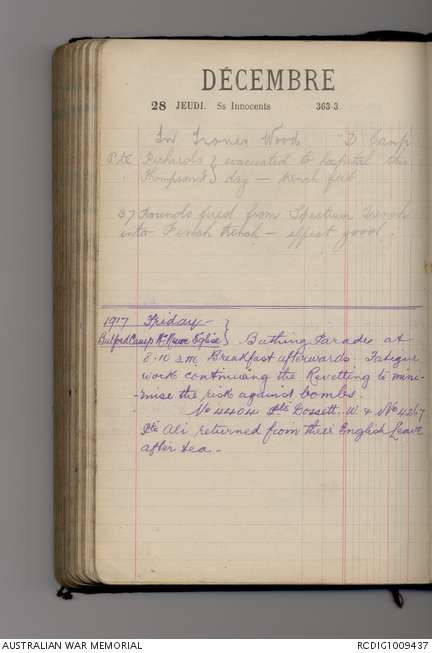 DÉCEMBRE
28 JEUDI. Ss Innocents 363-3
In Trones Wood "D" Camp
Pte Richards } evacuated to hospital this
" Thompson F } day — trench feet
37 Rounds fired from Spectrum Trench
into Finish Trench — effect good.
1917 Friday }
Bulford Camp Nr. Neuve Eglise } Bathing Parade at
8-10 a.m. Breakfast afterwards. Fatigue
work continuing the Revetting to mini-
-mise the risk against bombs.
No 4404 Pte Dossett. W. & No 4267
Pte Ali returned from their English Leave
after tea.
AUSTRALIAN WAR MEMORIAL RCDIG1009437